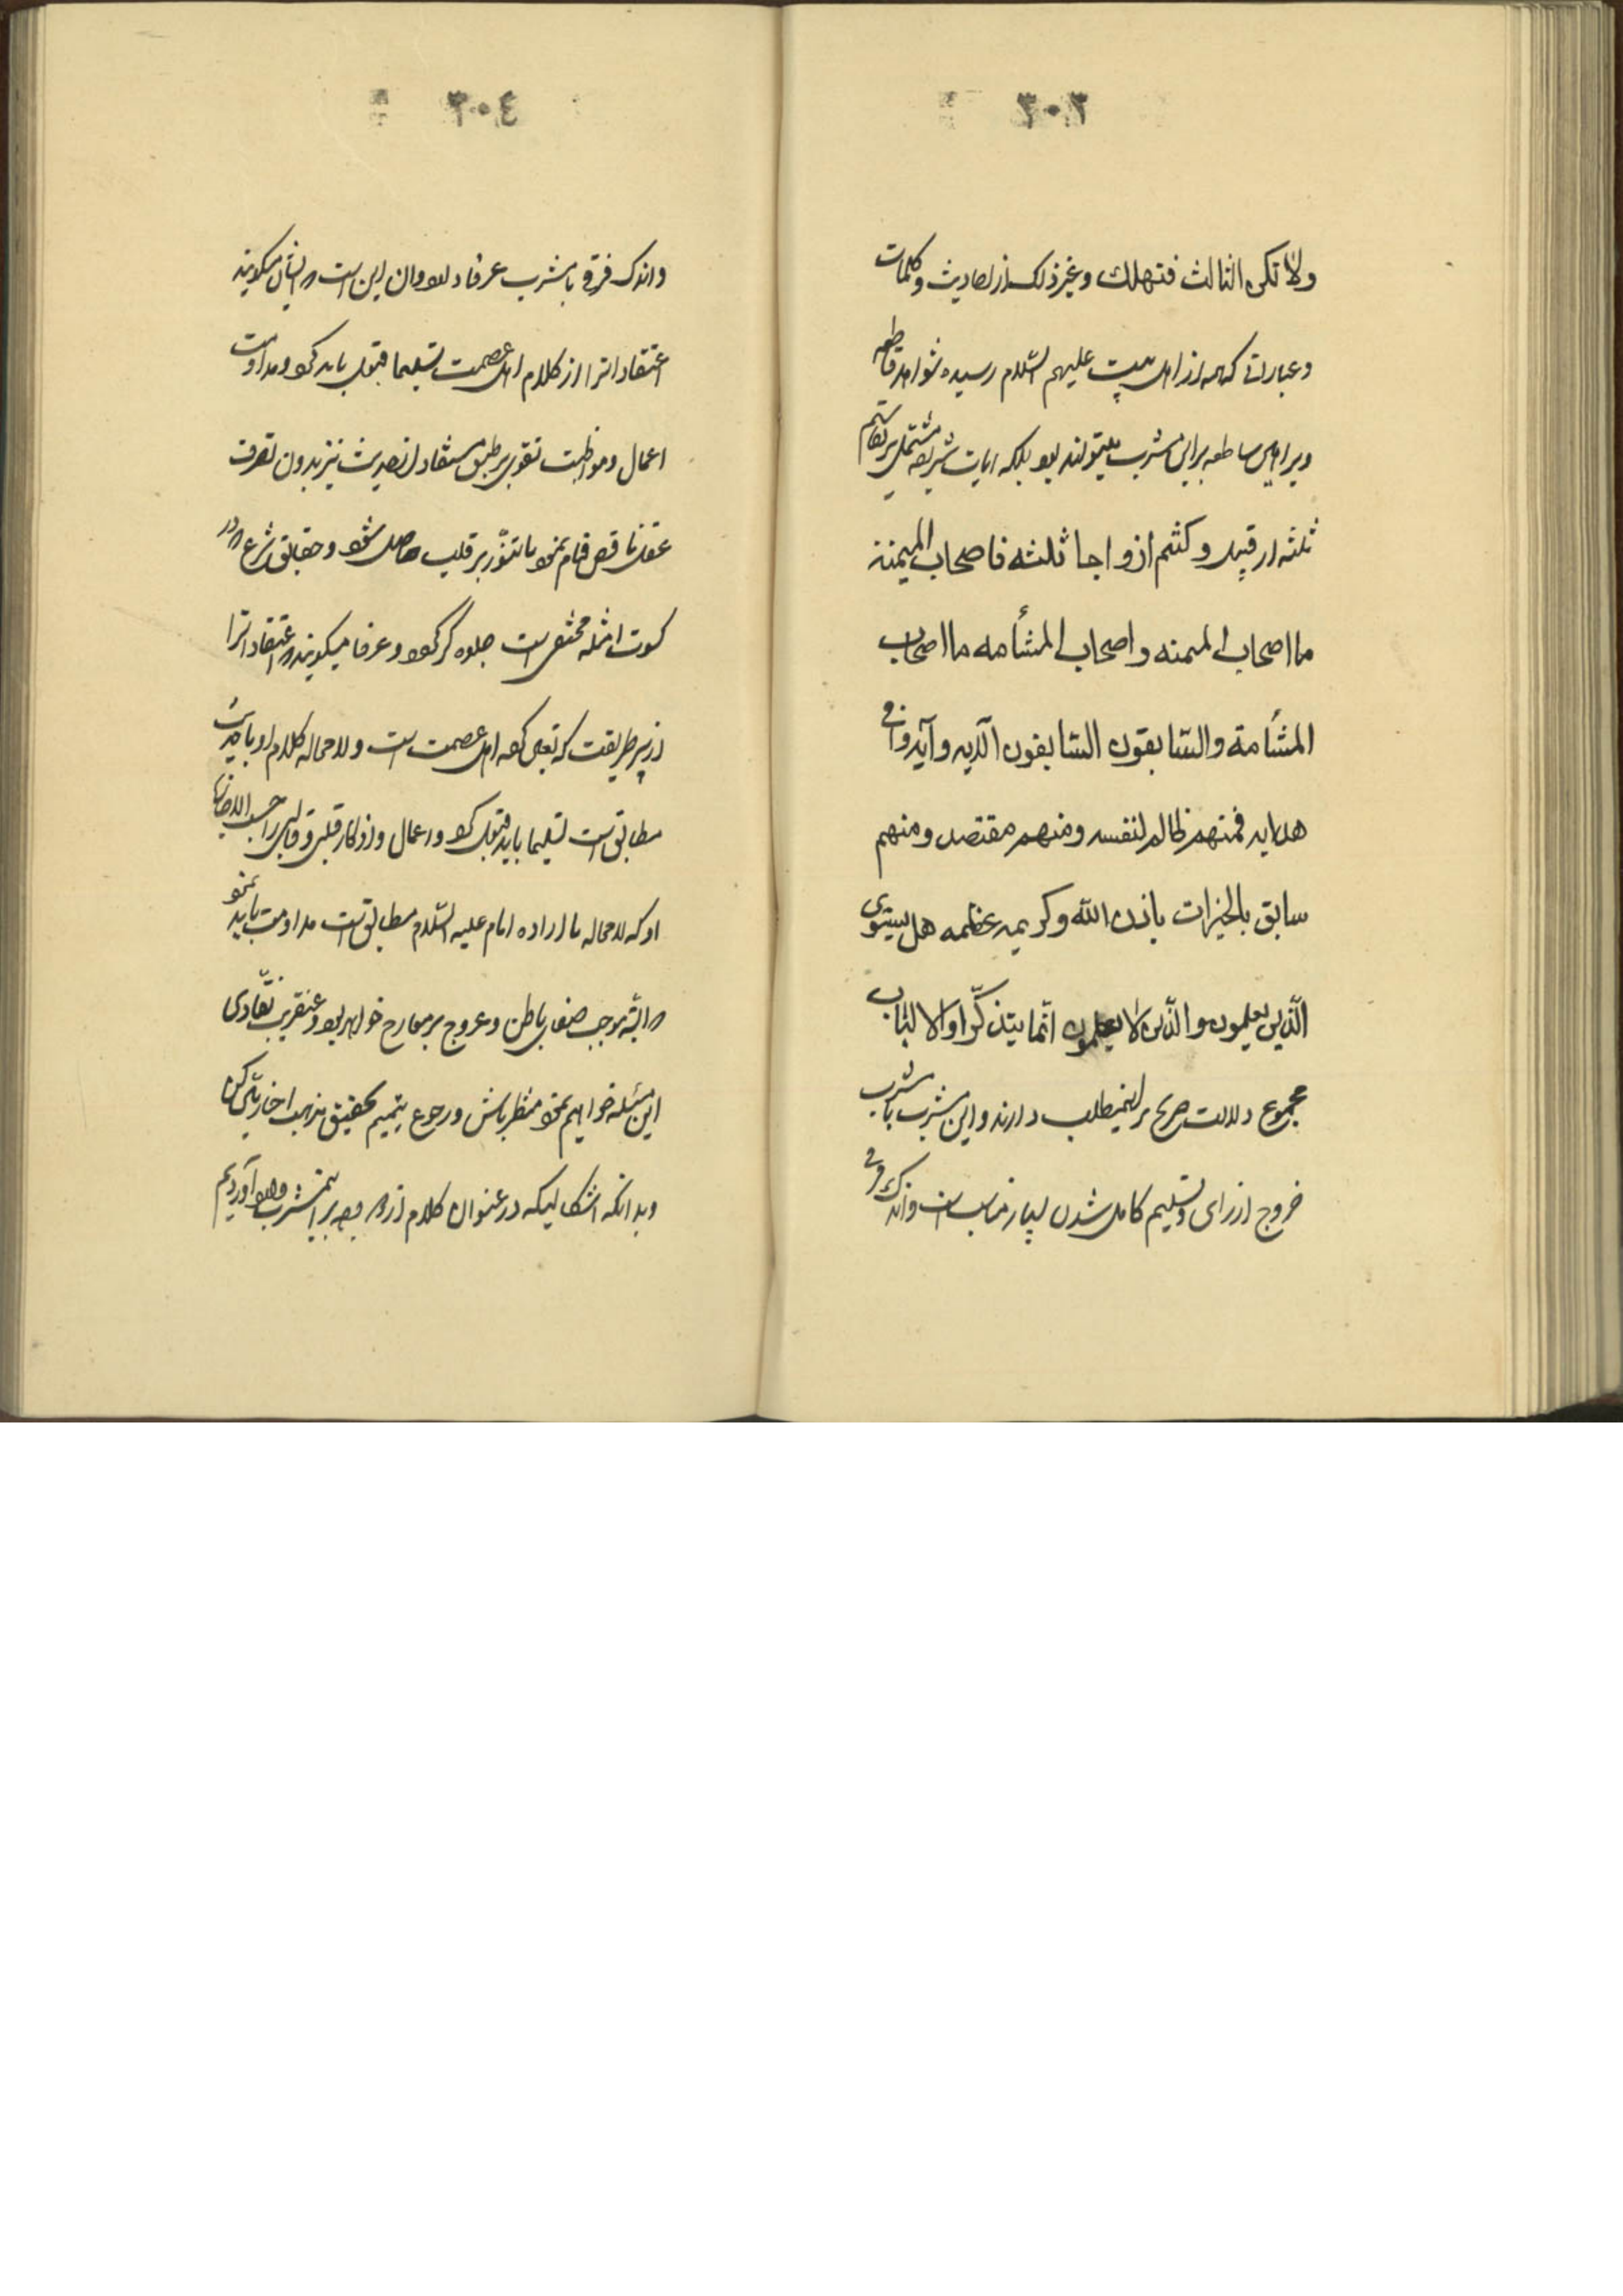 ٣٠٣
ولا تكن الثالث فتهلك وغير ذلك از احاديث وكلمات
وعبارات كه از اهل بيت عليهم السّلام رسيده شواهد قاطعه
وبراهين ساطعه براين مشرب ميتوانند بود بلكه ايات شريفه مشتمل بر تقاسيم
ثلثه از قبيل وكنتم ازواجا ثلثه فاصحاب الميمنة
ما اصحاب الميمنه واصحاب المشأمه ما اصحاب
المشأمة والسّابقون السّابقون الآيه وآيه وافى
هدايه فمنهم ظالم لنفسه ومنهم مقتصد ومنهم
سابق بالخيرات باذن الله وكريمه عظيمه هل يستوى
الّذين يعلمون والّذين لا يعلمون انّما يتذكّر اولوا الالباب
مجموع دلالت صريح بر اينمطلب دارند واين مشرب با مشرب
خروج از راى وتسليم كامل شدن بسيار مناسب است واندك فرقى
٣٠٤
واندك فرقى با مشرب عرفا دارد وان اين است كه ايشان ميكويند
اعتقاداترا از كلام اهل عصمت تسليما قبول بايد كرد ومداومت
اعمال ومواظبت تقوى بر طبق مستفاد از حديث نيز بدون تصرف
عقل ناقص قيام نمود تا تنوّر بر قلب حاصل شود وحقايق شرع كه در
كسوت امثله مختفى است جلوه كر كردد وعرفا ميكويند كه اعتقاداترا
از پير طريقت كه تعيين كرده اهل عصمت است ولا محاله كلام او با حديث
مطابق است تسليما بايد قبول كرد واعمال واذكار قلبى وقالبى را حسب الاجازه
او كه لا محاله با اراده امام عليه السّلام مطابق است مداومت بايد نمود
كه البتّه موجب صفاى باطن وعروج بر معارج خواهد بود وعنقريب نقّادى
اين مسئله خواهيم نمود منتظر باش ورجوع بتتميم تحقيق مذهب اخباريّين كن
وبدانكه اشكاليكه در عنوان كلام از دو وجه بر اينمشرب وارد آورديم